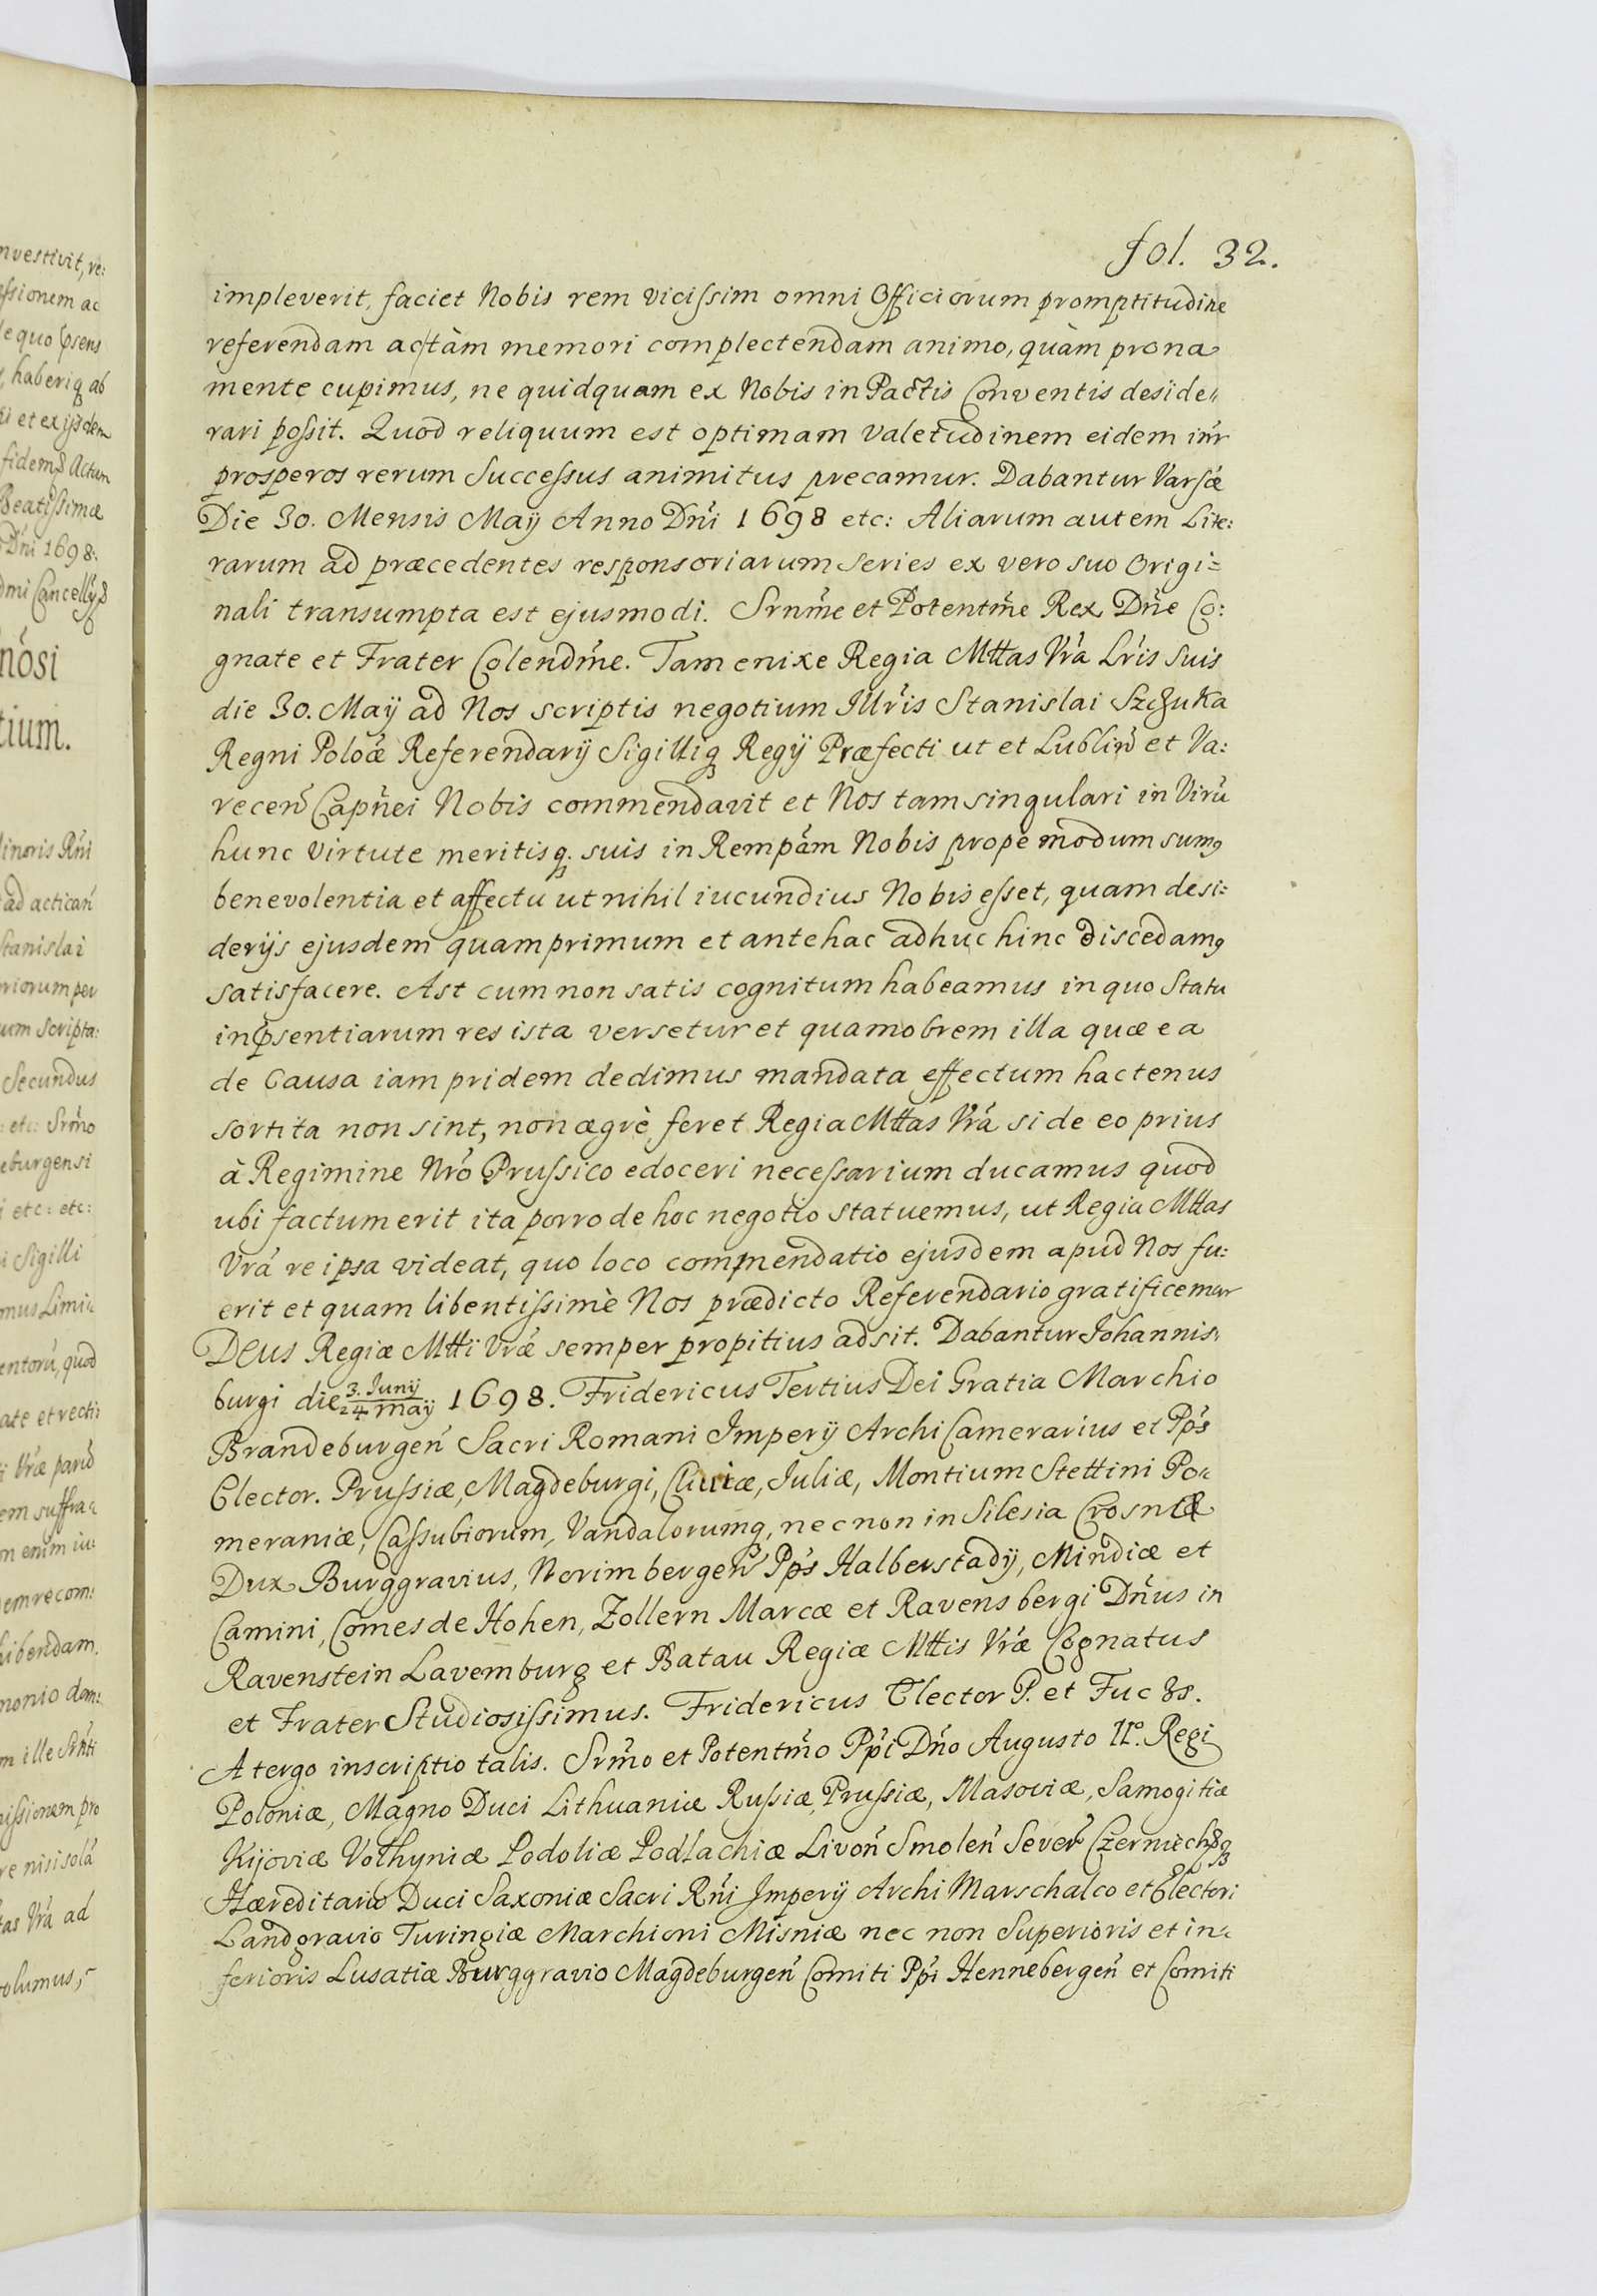 fol. 32.
impleverit, faciet Nobis rem vicissim omni Officiorum promptitudine
referendam ac tàm memori complectendam animo, quàm prona
mente cupimus, ne quidquam ex Nobis in Pactis Conventis deside„
rari possit. Quod reliquum est optimam valetudinem eidem
prosperos rerum Successus animitus precamur. Dabantur Varsæ
Die 30. Mensis Maÿ Anno Dńi 1698 etc: Aliarum autem Lite:
rarum ad præcedentes responsoriarum series ex vero suo Origi=
nali transumpta est ejusmodi. Srnḿe et Potentḿe Rex Dńe Co:
gnate et Frater Colendḿe. Tam enixe Regia Mttas Vŕa Lŕis suis
die 30. Maÿ ad Nos scriptis negotium Illŕis Stanislai Szczuka
Regni Poloæ Referendarÿ Sigilliq Regÿ Præfecti ut et Lubliń et Va:
receń Capńei Nobis commendavit et Nos tam singulari in Virú
hunc Virtute meritisq. suis in Rempám Nobis prope modum sumꝰ
benevolentia et affectu ut nihil iucundius Nobis esset, quam desi=
derÿs ejusdem quamprimum et antehac adhuc hinc discedamꝰ
satisfacere. Ast cum non satis cognitum habeamus in quo Statu
inpsentiarum res ista versetur et quamobrem illa quæ ea
de Causa iam pridem dedimus mandata effectum hactenus
sortita non sint, non ægrè feret Regia Mttas Vŕa si de eo prius
à Regimine Nŕo Prussico edoceri necessarium ducamus quod
ubi factum erit ita porro de hoc negotio statuemus, ut Regia Mttas
Vŕa re ipsa videat, quo loco commendatio ejusdem apud Nos fu:
erit et quam libentissimè Nos prædicto Referendario gratificemur
Deus Regiæ Mtti Vŕæ semper propitius adsit. Dabantur Johannis„
burgi die 3. Junij/24 maÿ 1698. Fridericus Tertius Dei Gratia Marchio
Brandeburgeń Sacri Romani Imperÿ Archi Camerarius et Pṕs
Elector. Prussiæ, Magdeburgi, Cliviæ, Juliæ, Montium Stettini Po„
meraniæ, Cassubiorum, Vandalorumq, nec non in Silesia Crosnæ
Dux Burggravius, Norimbergeń Pṕs Halberstadÿ, Mindiæ et
Camini, Comes de Hohen, Zollern Marcæ et Ravensbergi Dńus in
Ravenstein Lavemburg et Batau Regiæ Mttis Vŕæ Cognatus
et Frater Studiosissimus. Fridericus Elector P. et
A tergo inscriptio talis. Srḿo et Potentḿo Pṕi Dńo Augusto IIº. Regi
Poloniæ, Magno Duci Lithuaniæ Russiæ, Prussiæ, Masoviæ, Samogitiæ
Kijoviæ Volhyniæ Podoliæ Podlachiæ Livoń Smoleń Seveŕ
Hæreditario Duci Saxoniæ Sacri Rńi Imperÿ Archi Marschalco et Electori
Landgravio Turingiæ Marchioni Misniæ nec non Superioris et in„
ferioris Lusatiæ Burggravio Magdeburgeń Comiti Pṕi Hennebergeń et Comiti